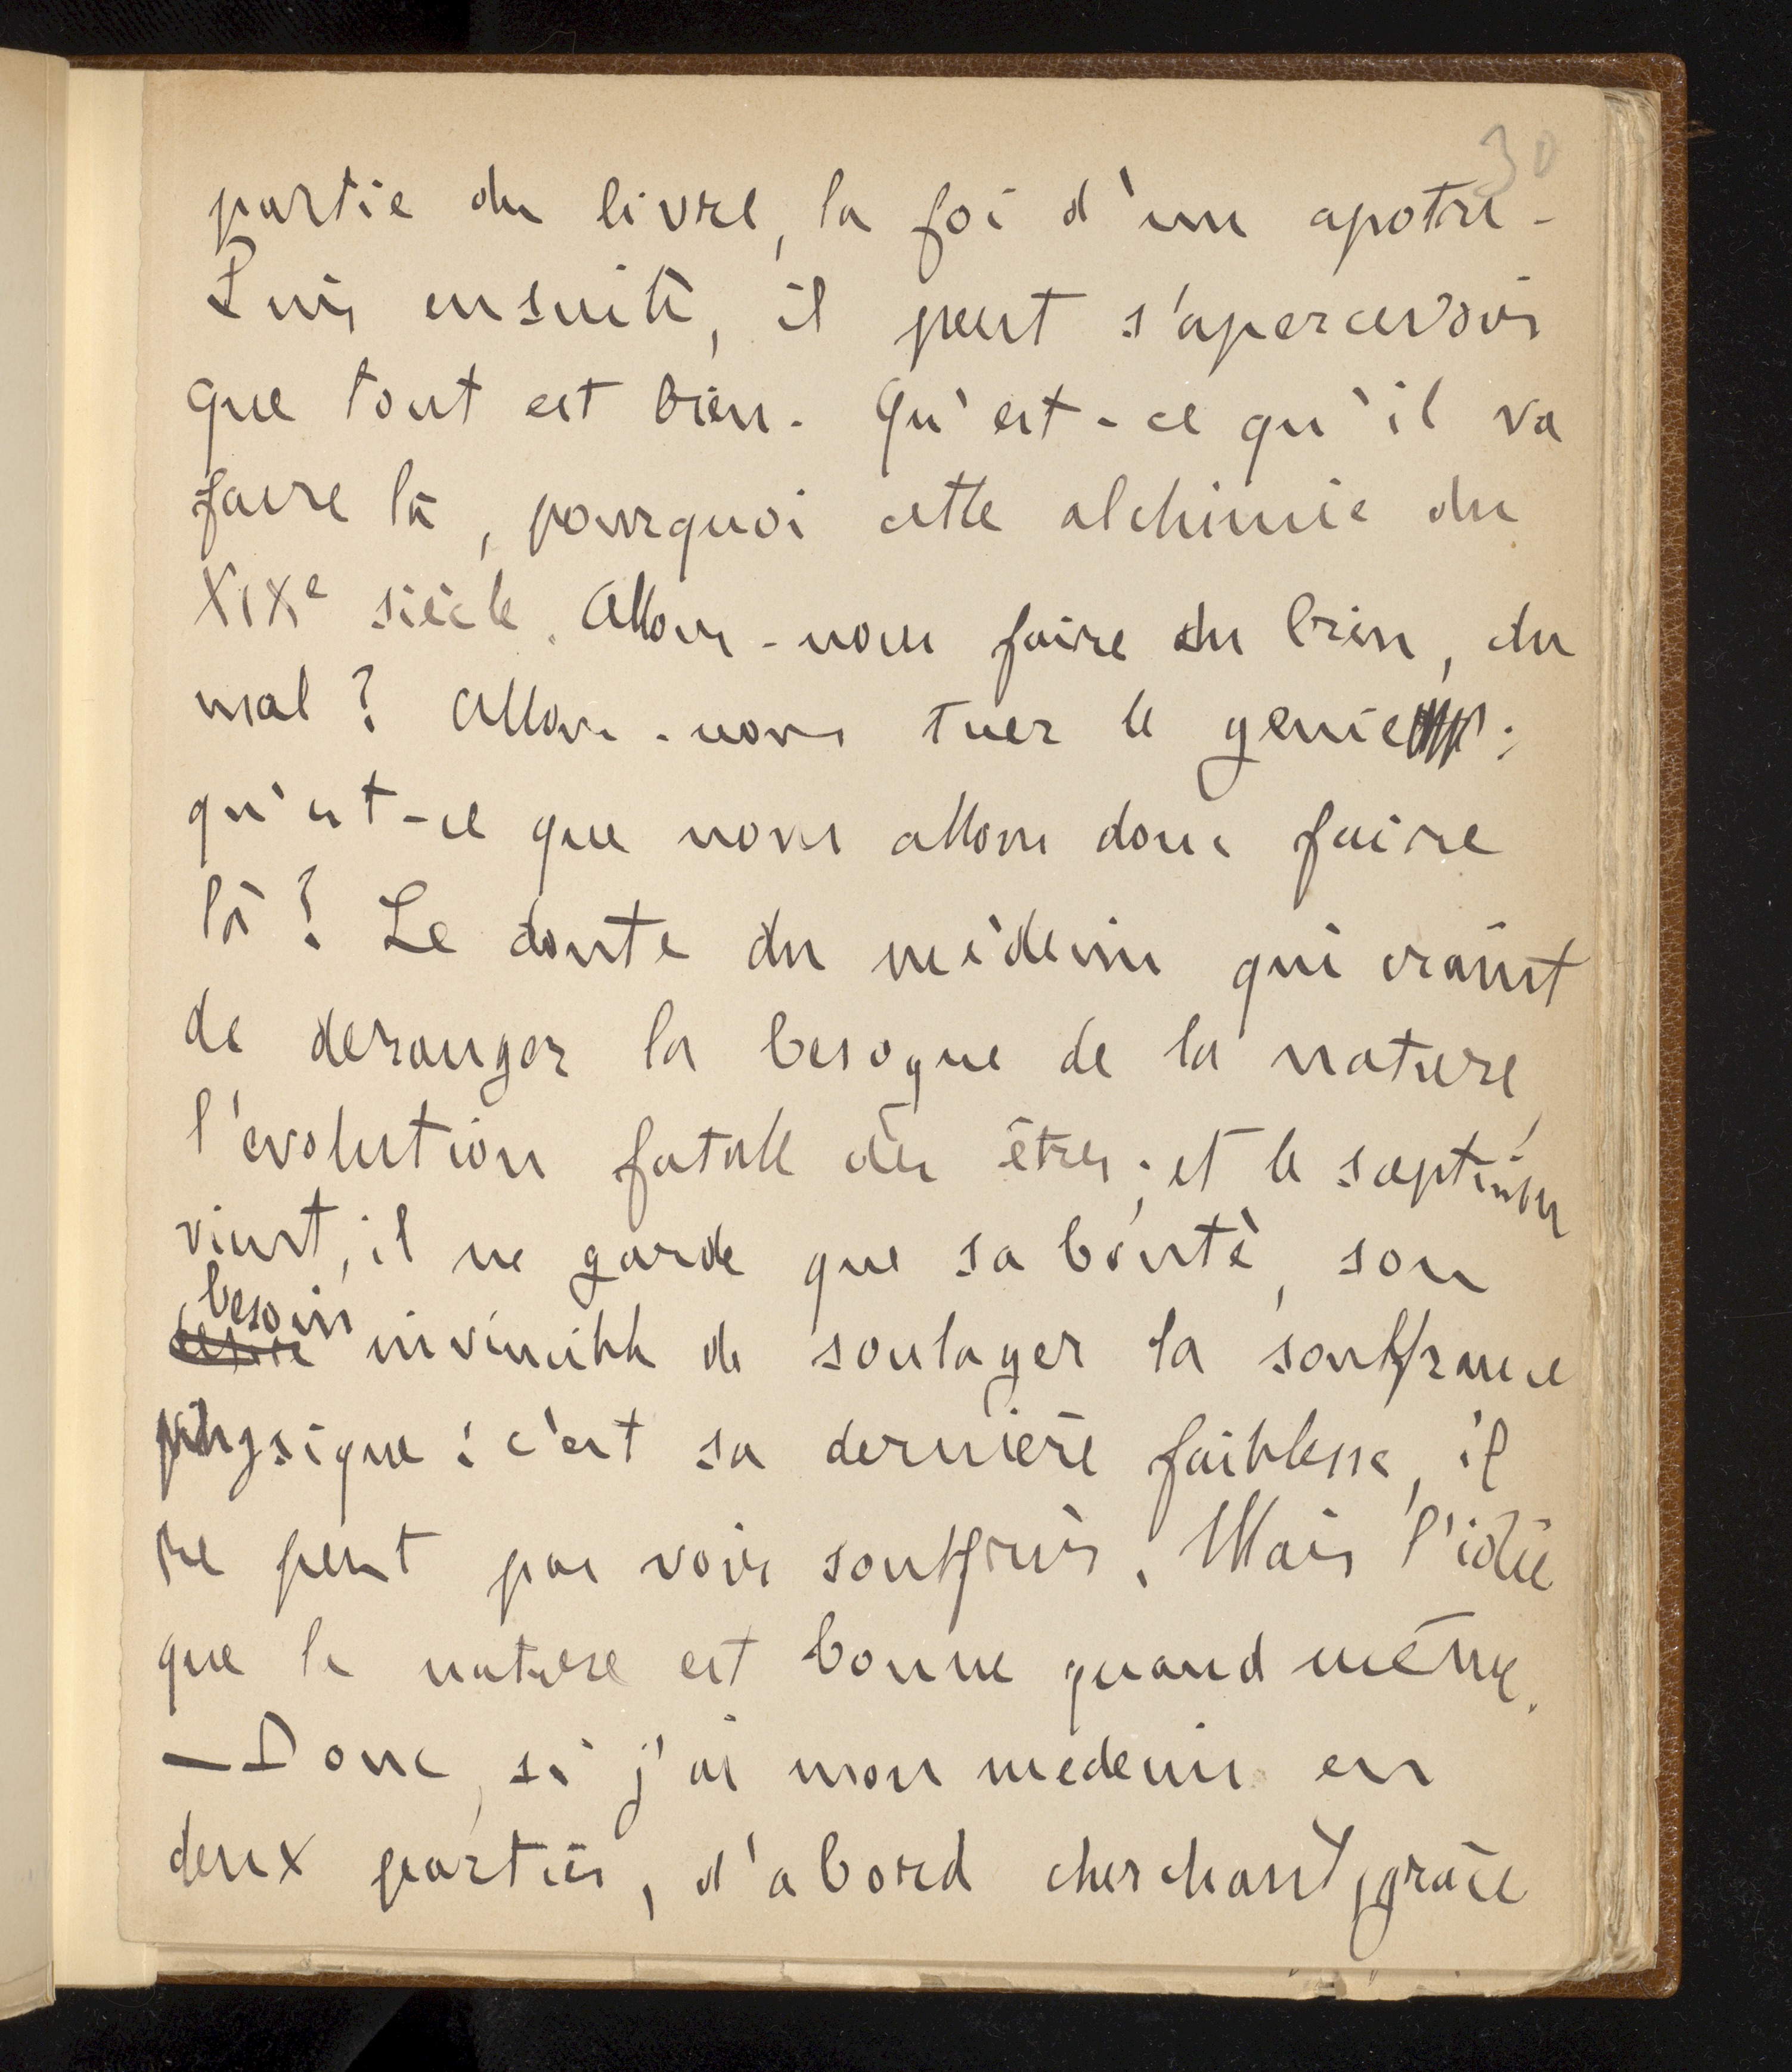 30
partie du livre, la foi d'un apotre.
Puis ensuite, il peut s'apercevoir
que tout est bien. Qu'est-ce qu'il va
faire là, pourquoi cette alchimie du
XIXe siècle. Allons-nous faire du bien, du
mal? Allons-nous tuer le genie:
qu'est-ce que nous allons donc faire
là? Le doute du médecin qui craint
de deranger la besogne de la nature,
l'evolution fatale des êtres; et le scepticisme
vient, il ne garde que sa bonté, son
besoin
desir invincible de soulager la souffrance
physique: c'est sa dernière faiblesse, il
ne peut pas voir souffrir. Mais l'idée
que la nature est bonne quand même.
— Donc, si j'ai mon medecin en
deux parties, d'abord cherchant, grâce